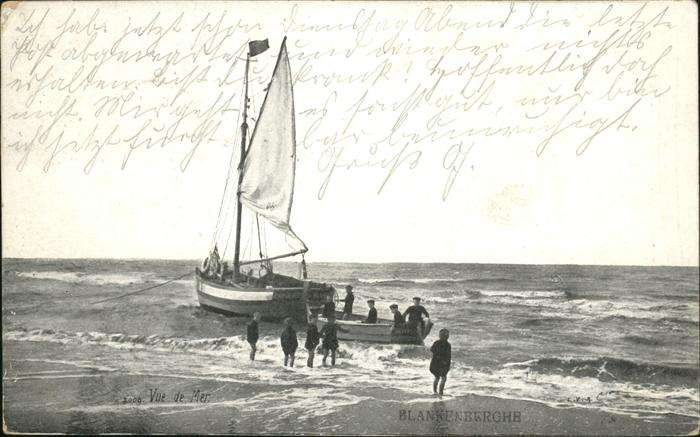 Ich habe jetzt schon Dienstag Abend die letzte
Post abgewartet und wieder nichts
erhalten. Bist du krank? Hoffentlich doch
nicht. Mir geht es sonst gut, nur bin
ich jetzt furchtbar beunruhigt.
Gruß G.
2000. Vue de Mer.
BLANKENBERGHE